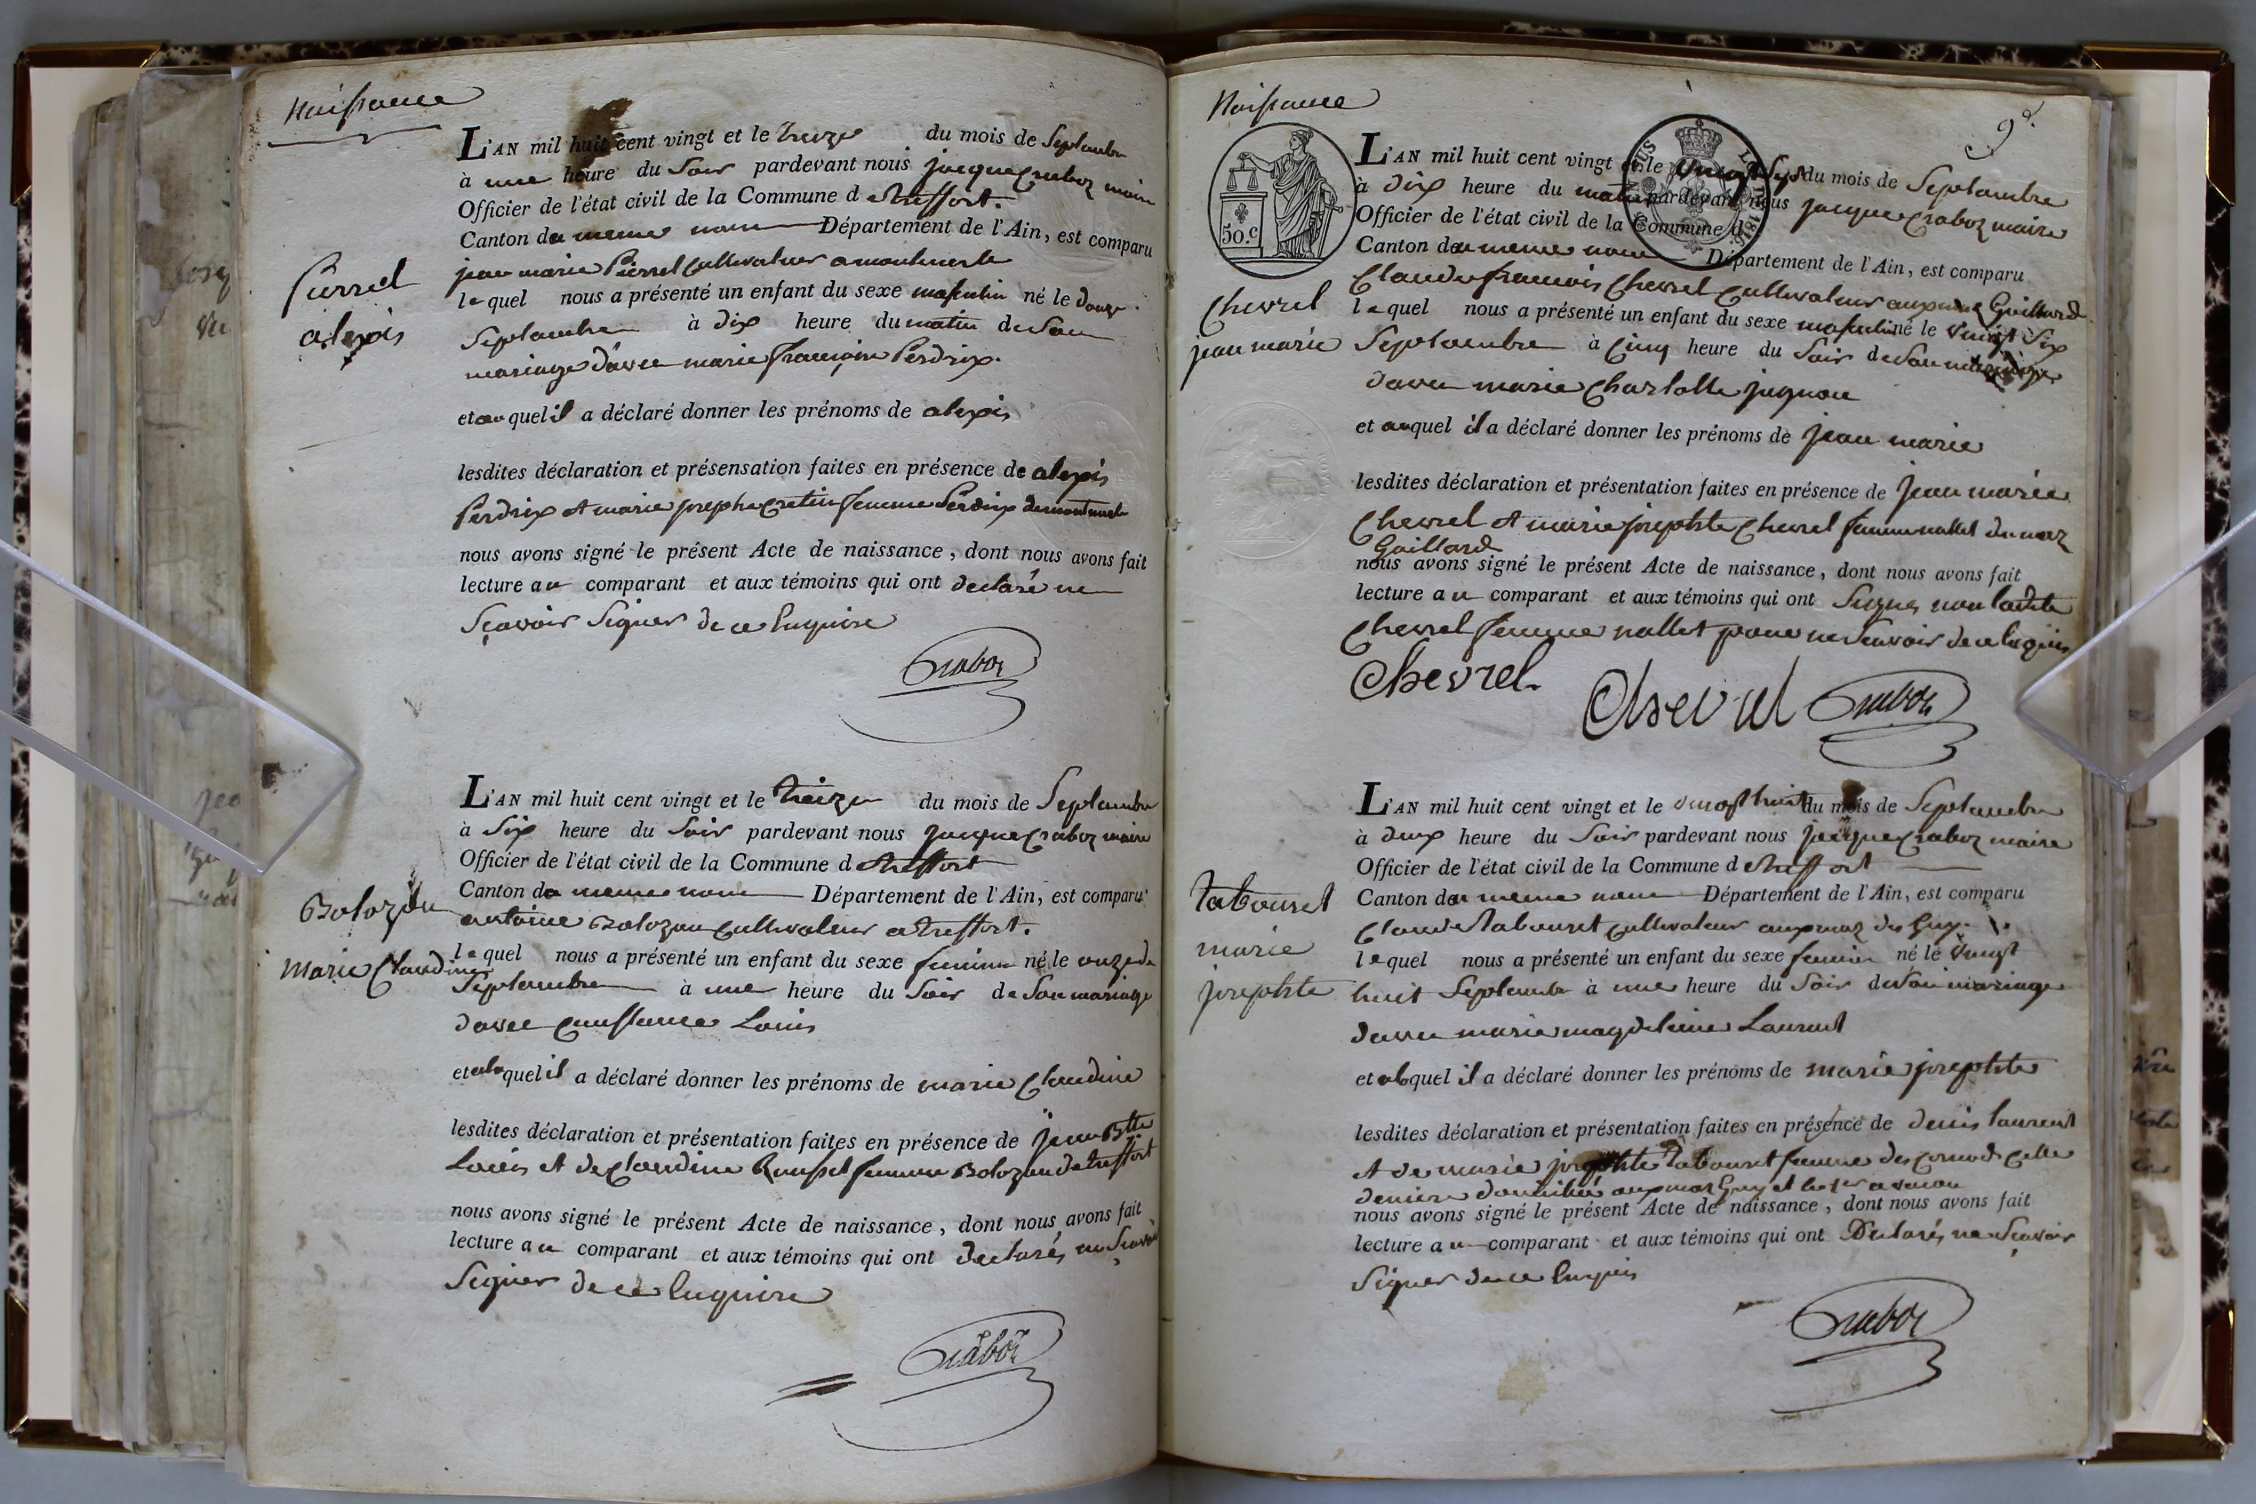 Naissance
L'AN mil huit cent vingt et le treize du mois de Septembre
à une heure du Soir pardevant nous jacque Craboz maire
Officier de l'état civil de la Commune d etreffort.
Canton du meme nom Département de l'Ain, est comparu
jean marie Pierrel Cultivateur a
Pierrel
alexis
lequel nous a présenté un enfant du sexe masculin né le douze
Septembre à dix heure du matin de Son
mariage d'avec marie françoise Perdrix.
et auquel il a déclaré donner les prénoms de alexis
lesdites déclaration et présensation faites en présence de alexis
Perdrix et marie josephe Cretin femme Perdrix
nous avons signé le présent Acte de naissance, dont nous avons fait
lecture au comparant et aux témoins qui ont declaré ne
Sçavoir Signer de ce Enquire
Craboz
L'AN mil huit cent vingt et le treize du mois de Septembre
à Six heure du Soir pardevant nous jacque Craboz maire
Officier de l'état civil de la Commune d etreffort
Canton du meme nom Département de l'Ain, est comparu
antoine Bolozon Cultivateur a treffort.
Bolozon
marie Claudine
lequel nous a présenté un enfant du sexe feminin né le onze de
Septembre à une heure du Soir de Son mariage
davec Constance Louis
et alaquel il a déclaré donner les prénoms de marie Claudine
lesdites déclaration et présentation faites en présence de jean Btte
Louis et de Claudine femme Bolozon de treffort
nous avons signé le présent Acte de naissance, dont nous avons fait
lecture au comparant et aux témoins qui ont declarés ne Sçavoir
Signer de ce Enquire
Craboz
Naissance
9e.
50.c
L'AN mil huit cent vingt et le vingt Sept du mois de Septembre
à dix heure du matin pardevant nous jacque Craboz maire
Officier de l'état civil de la Commune d
Canton du meme nom Département de l'Ain, est comparu
Claude françois Chevrel Cultivateur aux maz Gaillard
Chevrel
jean marie
lequel nous a présenté un enfant du sexe masculin né le vingt Six
Septembre à Cinq heure du Soir de Son mariage
davec marie Charlotte jugnon
et auquel il a déclaré donner les prénoms de jean marie
lesdites déclaration et présentation faites en présence de jean marie
Chevrel et marie josephte Chevrel femme nallet du maz
Gaillard
nous avons signé le présent Acte de naissance, dont nous avons fait
lecture au comparant et aux témoins qui ont Signés non ladite
Chevrel femme nallet pour ne Scavoir de ce Enquis
Chevrel
Chevrel
Craboz
L'AN mil huit cent vingt et le vingt huit du mois de Septembre
à deux heure du Soir pardevant nous jacque Craboz maire
Officier de l'état civil de la Commune d etreffort
Canton du meme nom Département de l'Ain, est comparu
Claude tabouret Cultivateur aux maz des Guy.
tabouret
marie
josephte
lequel nous a présenté un enfant du sexe feminin né le vingt
huit Septembre à une heure du Soir de Son mariage
davec marie magdeleine Laurent
et alaquel il a déclaré donner les prénoms de marie josephte
lesdites déclaration et présentation faites en présence de denis laurent
et de marie josephte tabouret femme des Celle
derniere domiciliée aux maz Guy et le 1er a
nous avons signé le présent Acte de naissance, dont nous avons fait
lecture au comparant et aux témoins qui ont Declarés ne Sçavoir
Signer de ce Enquis
Craboz